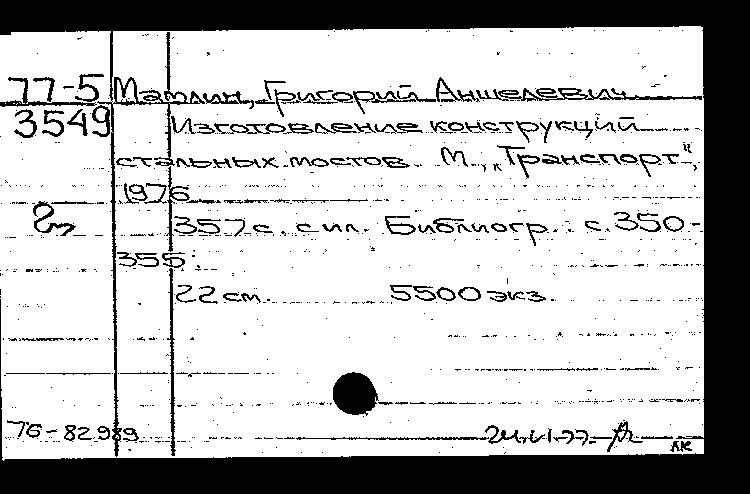 77-5 Матлин, Григорий Аншелевич
3549 Изготовление конструкций
стальных мостов. М., „Транспорт",
1976
357 с. с ил. Библиогр.: с. 350-
355.
22 см. 5500 экз.
76-82989 24.VI-77.
АК